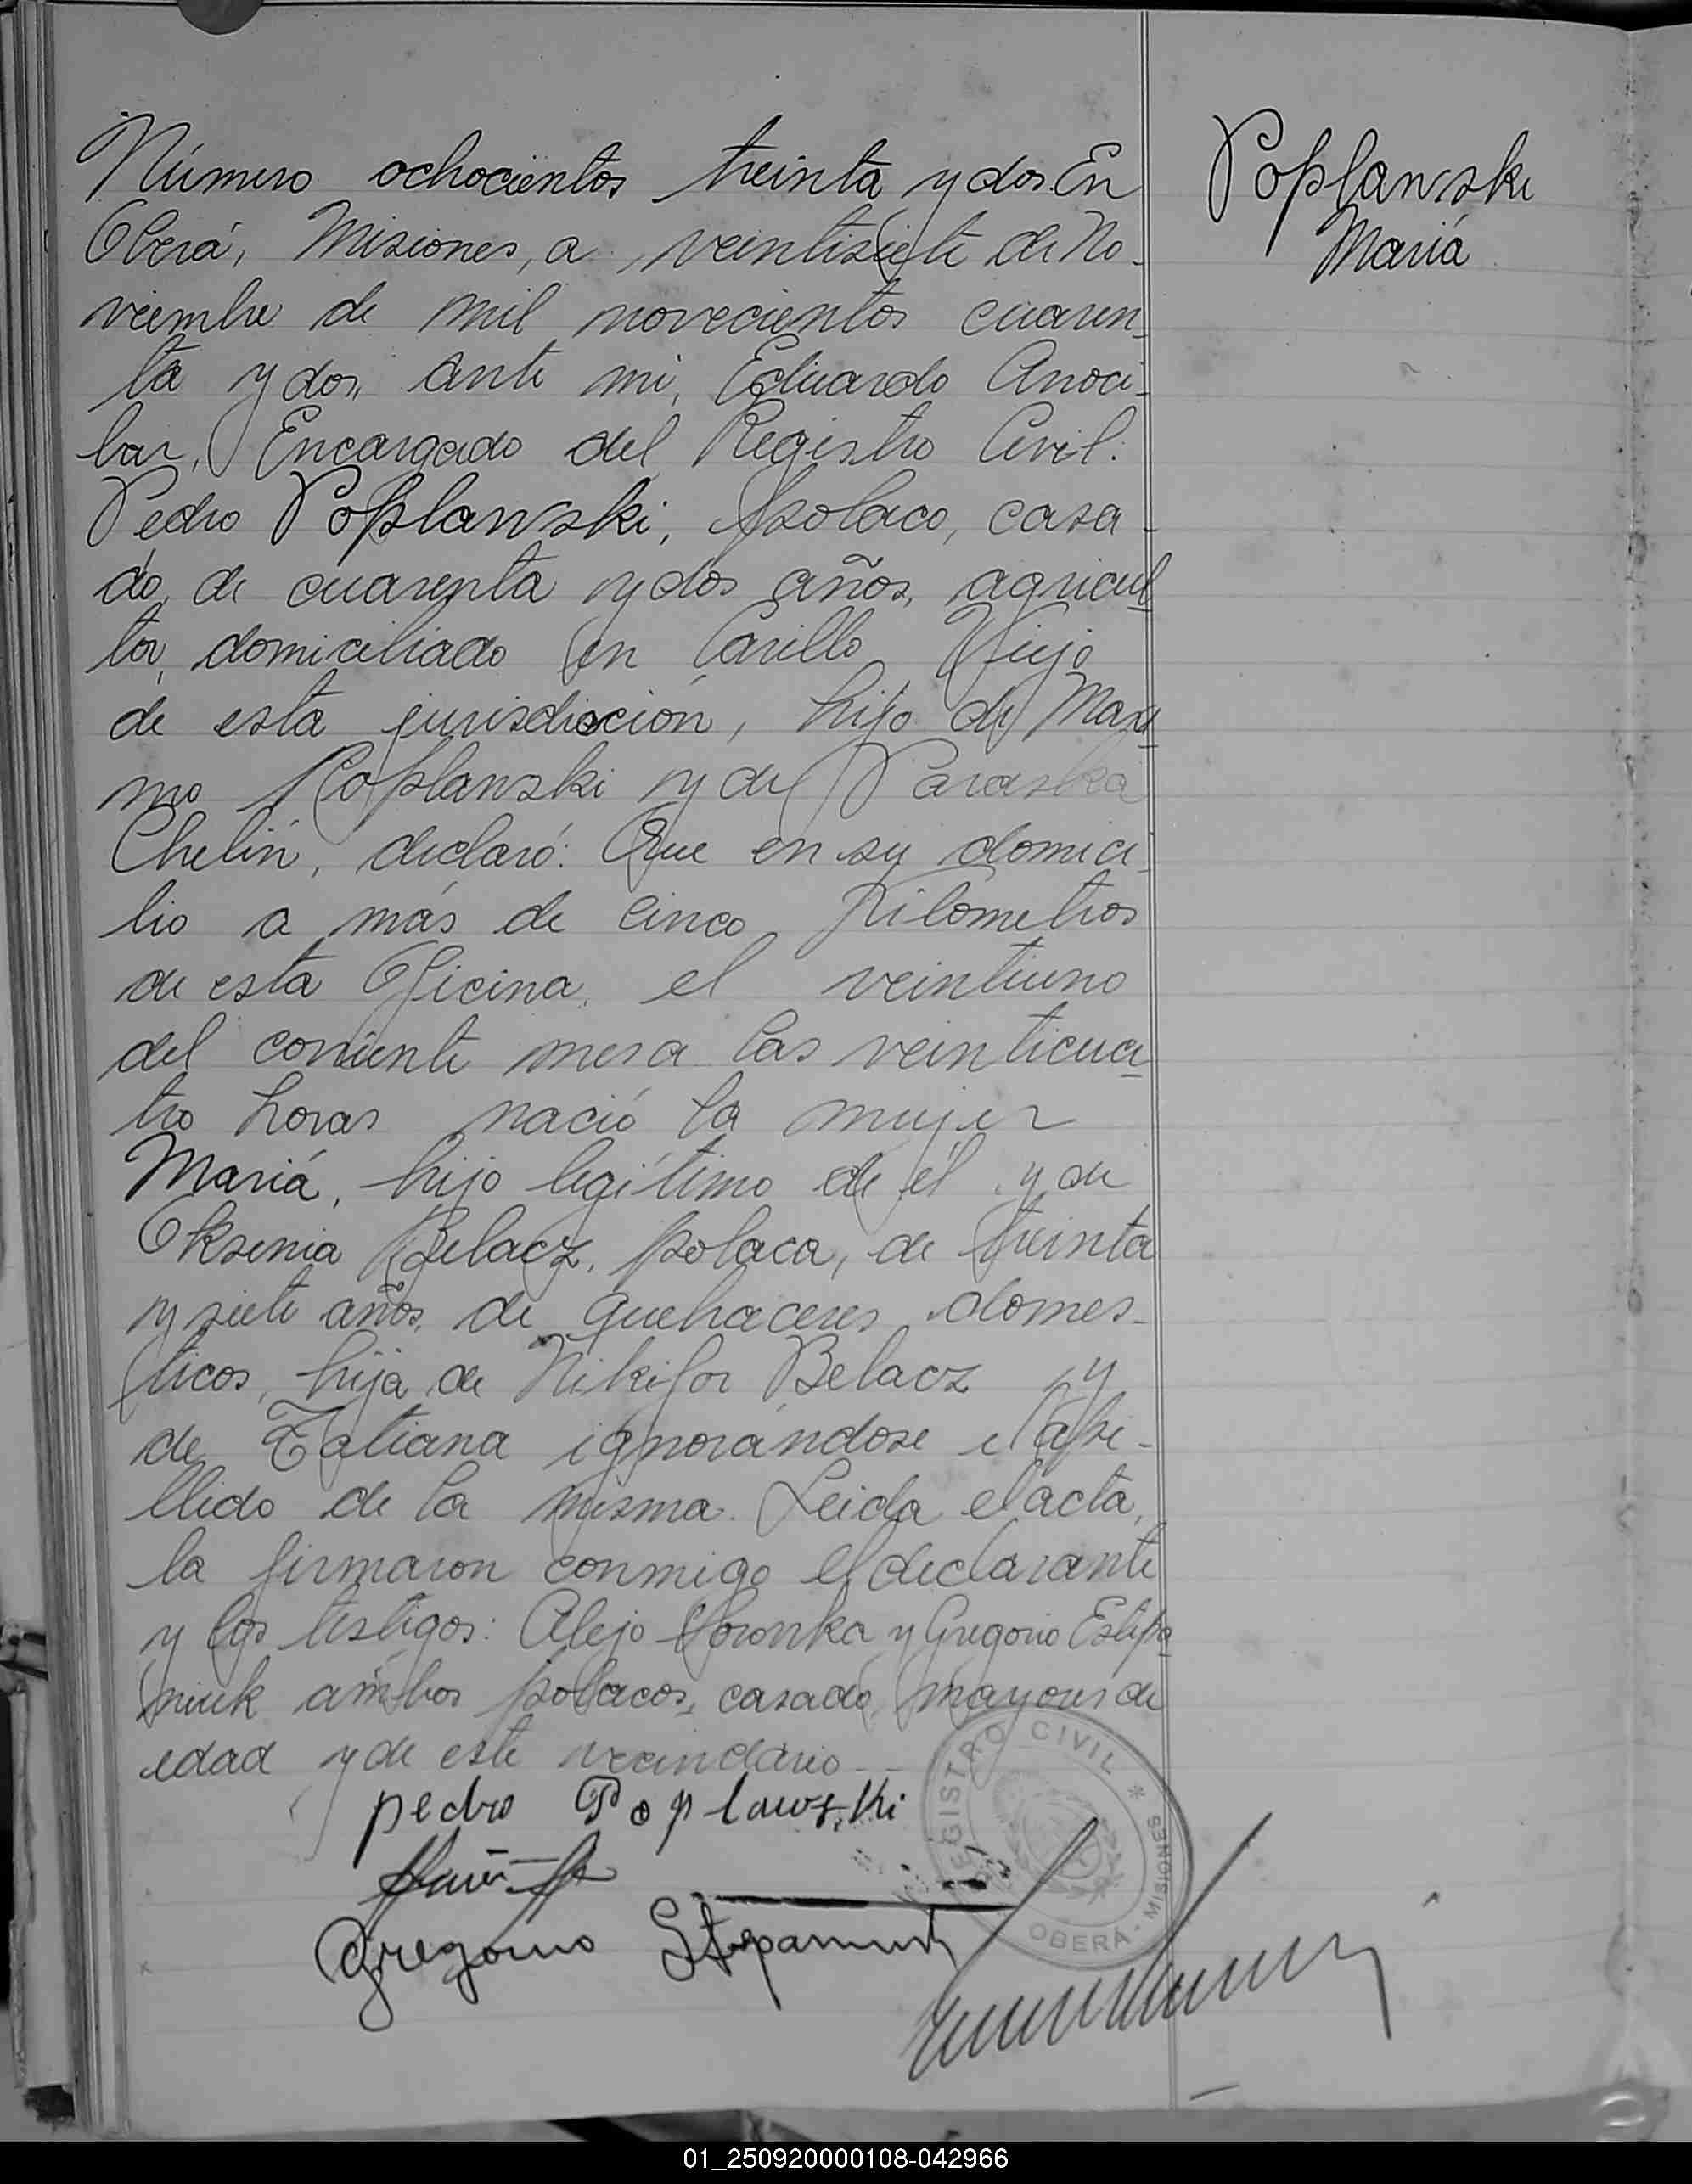 Número ochocientos treinta y dos. En
Oberá, Misiones, a veintisiete de No-
viembre de mil novecientos cuaren-
ta y dos, ante mi, Eduardo Anoci-
bar, Encargado del Registro Civil:
Pedro Poplawski, polaco, casa-
do, de cuarenta y dos años, agricul-
tor, domiciliado en Carillo Viejo
de esta jurisdicción, hijo de Maxi-
mo Poplawski y de Paraska
Chelin, declaró: Que en su domici-
lio a más de cinco kilómetros
de esta Oficina, el veintiuno
del corriente mes a las veinticua-
tro horas nació la mujer
María, hijo legítimo de él y de
Oksenia Belacz, polaca, de treinta
y siete años, de quehaceres domes-
ticos, hija de Nikifor Belacz y
de Tatiana ignorándose el ape-
llido de la misma. Leida el acta,
la firmaron conmigo el declarante
y los testigos: Alejo Woronka y Gregorio Estepa
niuk ambos polacos, casado, mayores de
edad y de este vecindario
Poplawski
María
pedro Poplawski
Gregorio Stepaniuk
REGISTRO CIVIL * OBERÁ - MISIONES
01_250920000108-042966